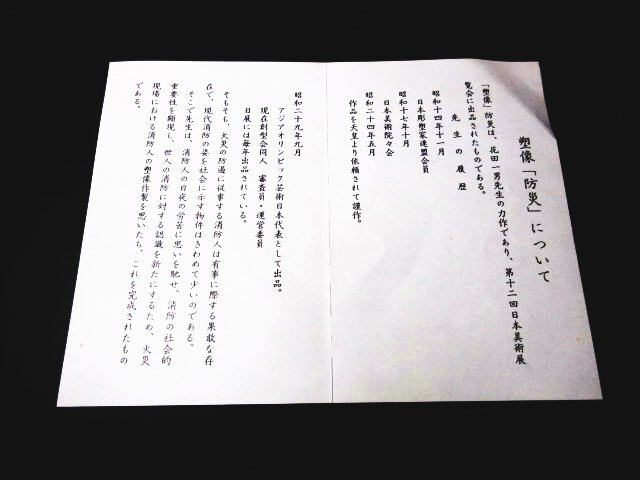 塑像「防災」について
「塑像」防災は、花田一男先生の力作であり、第十二回日本美術展
覧会に出品されたものである。
先生の履歴
昭和十四年十一月
日本彫塑家連盟会員
昭和十七年十月
日本美術院々会
昭和二十四年五月
作品を天皇より依頼されて謹作。
昭和二十九年九月
アジアオリンピック芸術日本代表として出品。
現在創型会同人 審査員・運営委員
日展には毎年出品されている。
そもそも、火災の防遏に従事する消防人は有事に際する果敢な存
在で、現代消防の姿を社会に示す物件はきわめて少いのである。
そこで先生は、消防人の日夜の労苦に思いを馳せ、消防の社会的
重要性を顕現し、世人の消防に対する認識を新たにするため、火災
現場における消防人の塑像作製を思いたち、これを完成されたもの
である。